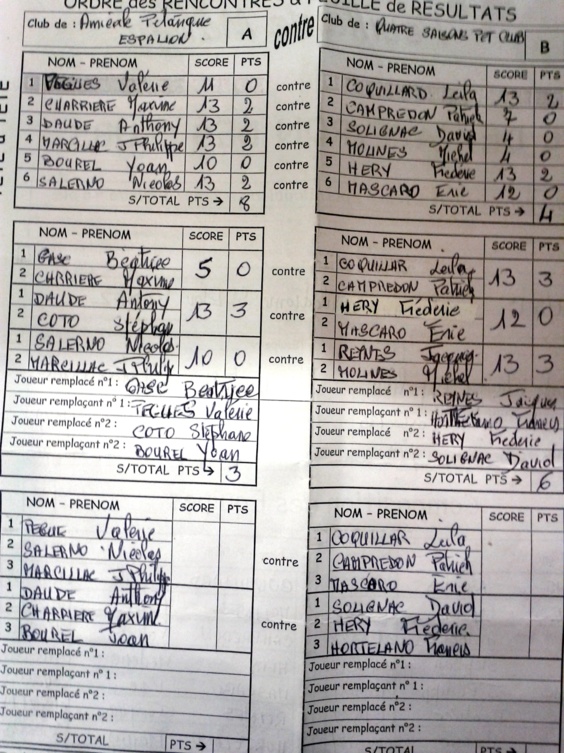 ORDRE des RENCONTRES & FEUILLE de RESULTATS
Club de : Amicale Petanque ESPALION. A contre Club de : QUATRE SAISONS PET CLUB B
NOM - PRENOM SCORE PTS
1 Valerie 11 0 contre
2 CHARRIERE Maxime 13 2 contre
3 DAUDE Anthony 13 2 contre
4 MARCILLAC J Philippe 13 2 contre
5 BOUREL Yoan 10 0 contre
6 SALERNO Nicolas 13 2 contre
S/TOTAL PTS → 8
NOM - PRENOM SCORE PTS
1 COQUILLARD Leila 13 2
2 CAMPREDON Patrick 7 0
3 SOLIGNAC David 4 0
4 MOLINES Michel 4 0
5 HERY Frederic 13 2
6 MASCARO Eric 12 0
S/TOTAL PTS → 4
NOM - PRENOM SCORE PTS
1 GASC Béatrice 5 0 contre
2 CHARRIERE Maxime
1 DAUDE Antony 13 3 contre
2 COTO Stéphan
1 SALERNO Nicolas 10 0 contre
2 MARCILLAC J Philip
Joueur remplacé n°1 : GASC Beatrice
Joueur remplaçant n°1 : Valerie
Joueur remplacé n°2 : COTO Stéphane
Joueur remplaçant n°2 : BOUREL Yoan
S/TOTAL PTS → 3
NOM - PRENOM SCORE PTS
1 COQUILLAR Leila 13 3
2 CAMPREDON Patrick
1 HERY Fréderic 12 0
2 MASCARO Eric
1 REYNES Jacques 13 3
2 MOLINES Michel
Joueur remplacé n°1 : REYNES Jacques
Joueur remplaçant n°1 : HORTELANO Francis
Joueur remplacé n°2 : HERY Frederic
Joueur remplaçant n°2 : SOLIGNAC David
S/TOTAL PTS → 6
NOM - PRENOM SCORE PTS
1 Valerie
2 SALERNO Nicolas contre
3 MARCILLAC J Philipp
1 DAUDE Anthony
2 CHARRIERE Maxime contre
3 BOUREL Joan
Joueur remplacé n°1 :
Joueur remplaçant n° 1 :
Joueur remplacé n°2 :
Joueur remplaçant n°2 :
S/TOTAL PTS →
NOM - PRENOM SCORE PTS
1 COQUILLAR Leila
2 CAMPREDON Patrick
3 MASCARO Eric
1 SOLIGNAC David
2 HERY Fréderic.
3 HORTELANO Francis
Joueur remplacé n°1 :
Joueur remplaçant n°1 :
Joueur remplacé n°2 :
Joueur remplaçant n°2 :
S/TOTAL PTS →